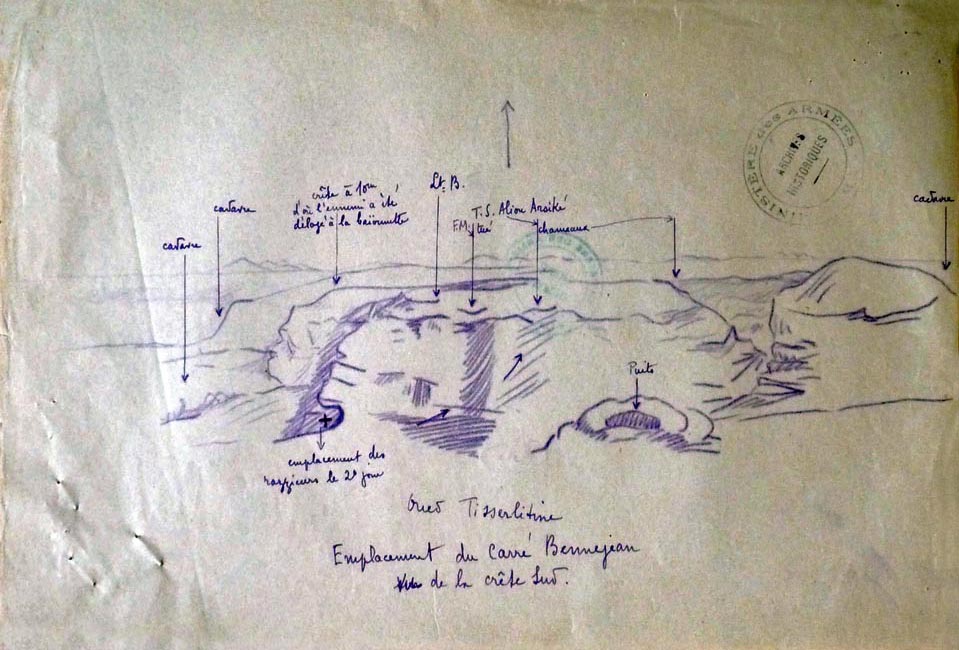 MINISTÈRE des ARMÉES
ARCHIVES
HISTORIQUES
cadavre
cadavre
crête à 10m
d'où l'ennemi a été
délogé à la baïonnette
Lt. B.
T.S. Aliou
F.M. tué
chameaux
cadavre
Puits
emplacement des
razzieurs le 2e jour
Oued Tisserlitine
Emplacement du Carré Bennejean
de la crête Sud.